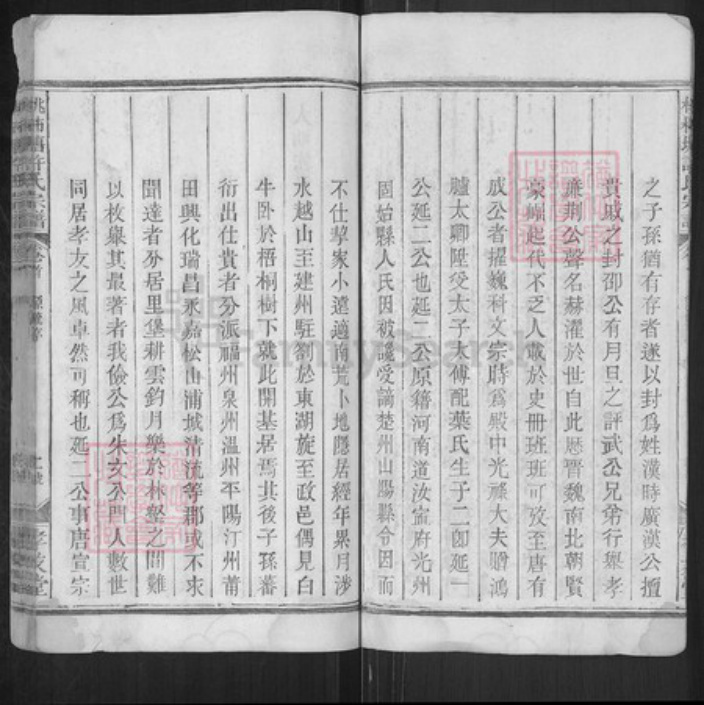 之子孫猶有存者遂以封爲姓漢時廣漢公擅
貴戚之封邵公有月旦之評武公兄弟行舉孝
廉荆公聲名赫濯於世自此歷晉魏南北朝賢
豪崛起代不乏人載於史冊班班可攷至唐有
成公者擢巍科文宗時爲殿中光祿大夫贈鴻
臚太卿陞受太子太傅配葉氏生子二卽延一
公延二公也延二公原籍河南道汝甯府光州
固始縣人氏因被讒受謫楚州山陽縣令因而
不仕挈家小遠適南荒卜地隱居經年累月涉
水越山至建州駐劄於東湖旋至政邑偶見白
牛卧於梧桐樹下就此開基居焉其後子孫蕃
衍出仕貴者分派福州泉州溫州平陽汀州莆
田興化瑞昌永嘉松山浦城清流等郡或不求
聞達者分居里堡耕雲釣月樂於林壑之間難
以枚舉其最著者我儉公爲朱文公門人數世
同居孝友之風卓然可稱也延二公事唐宣宗
許氏宗譜
卷首
FamilySearch